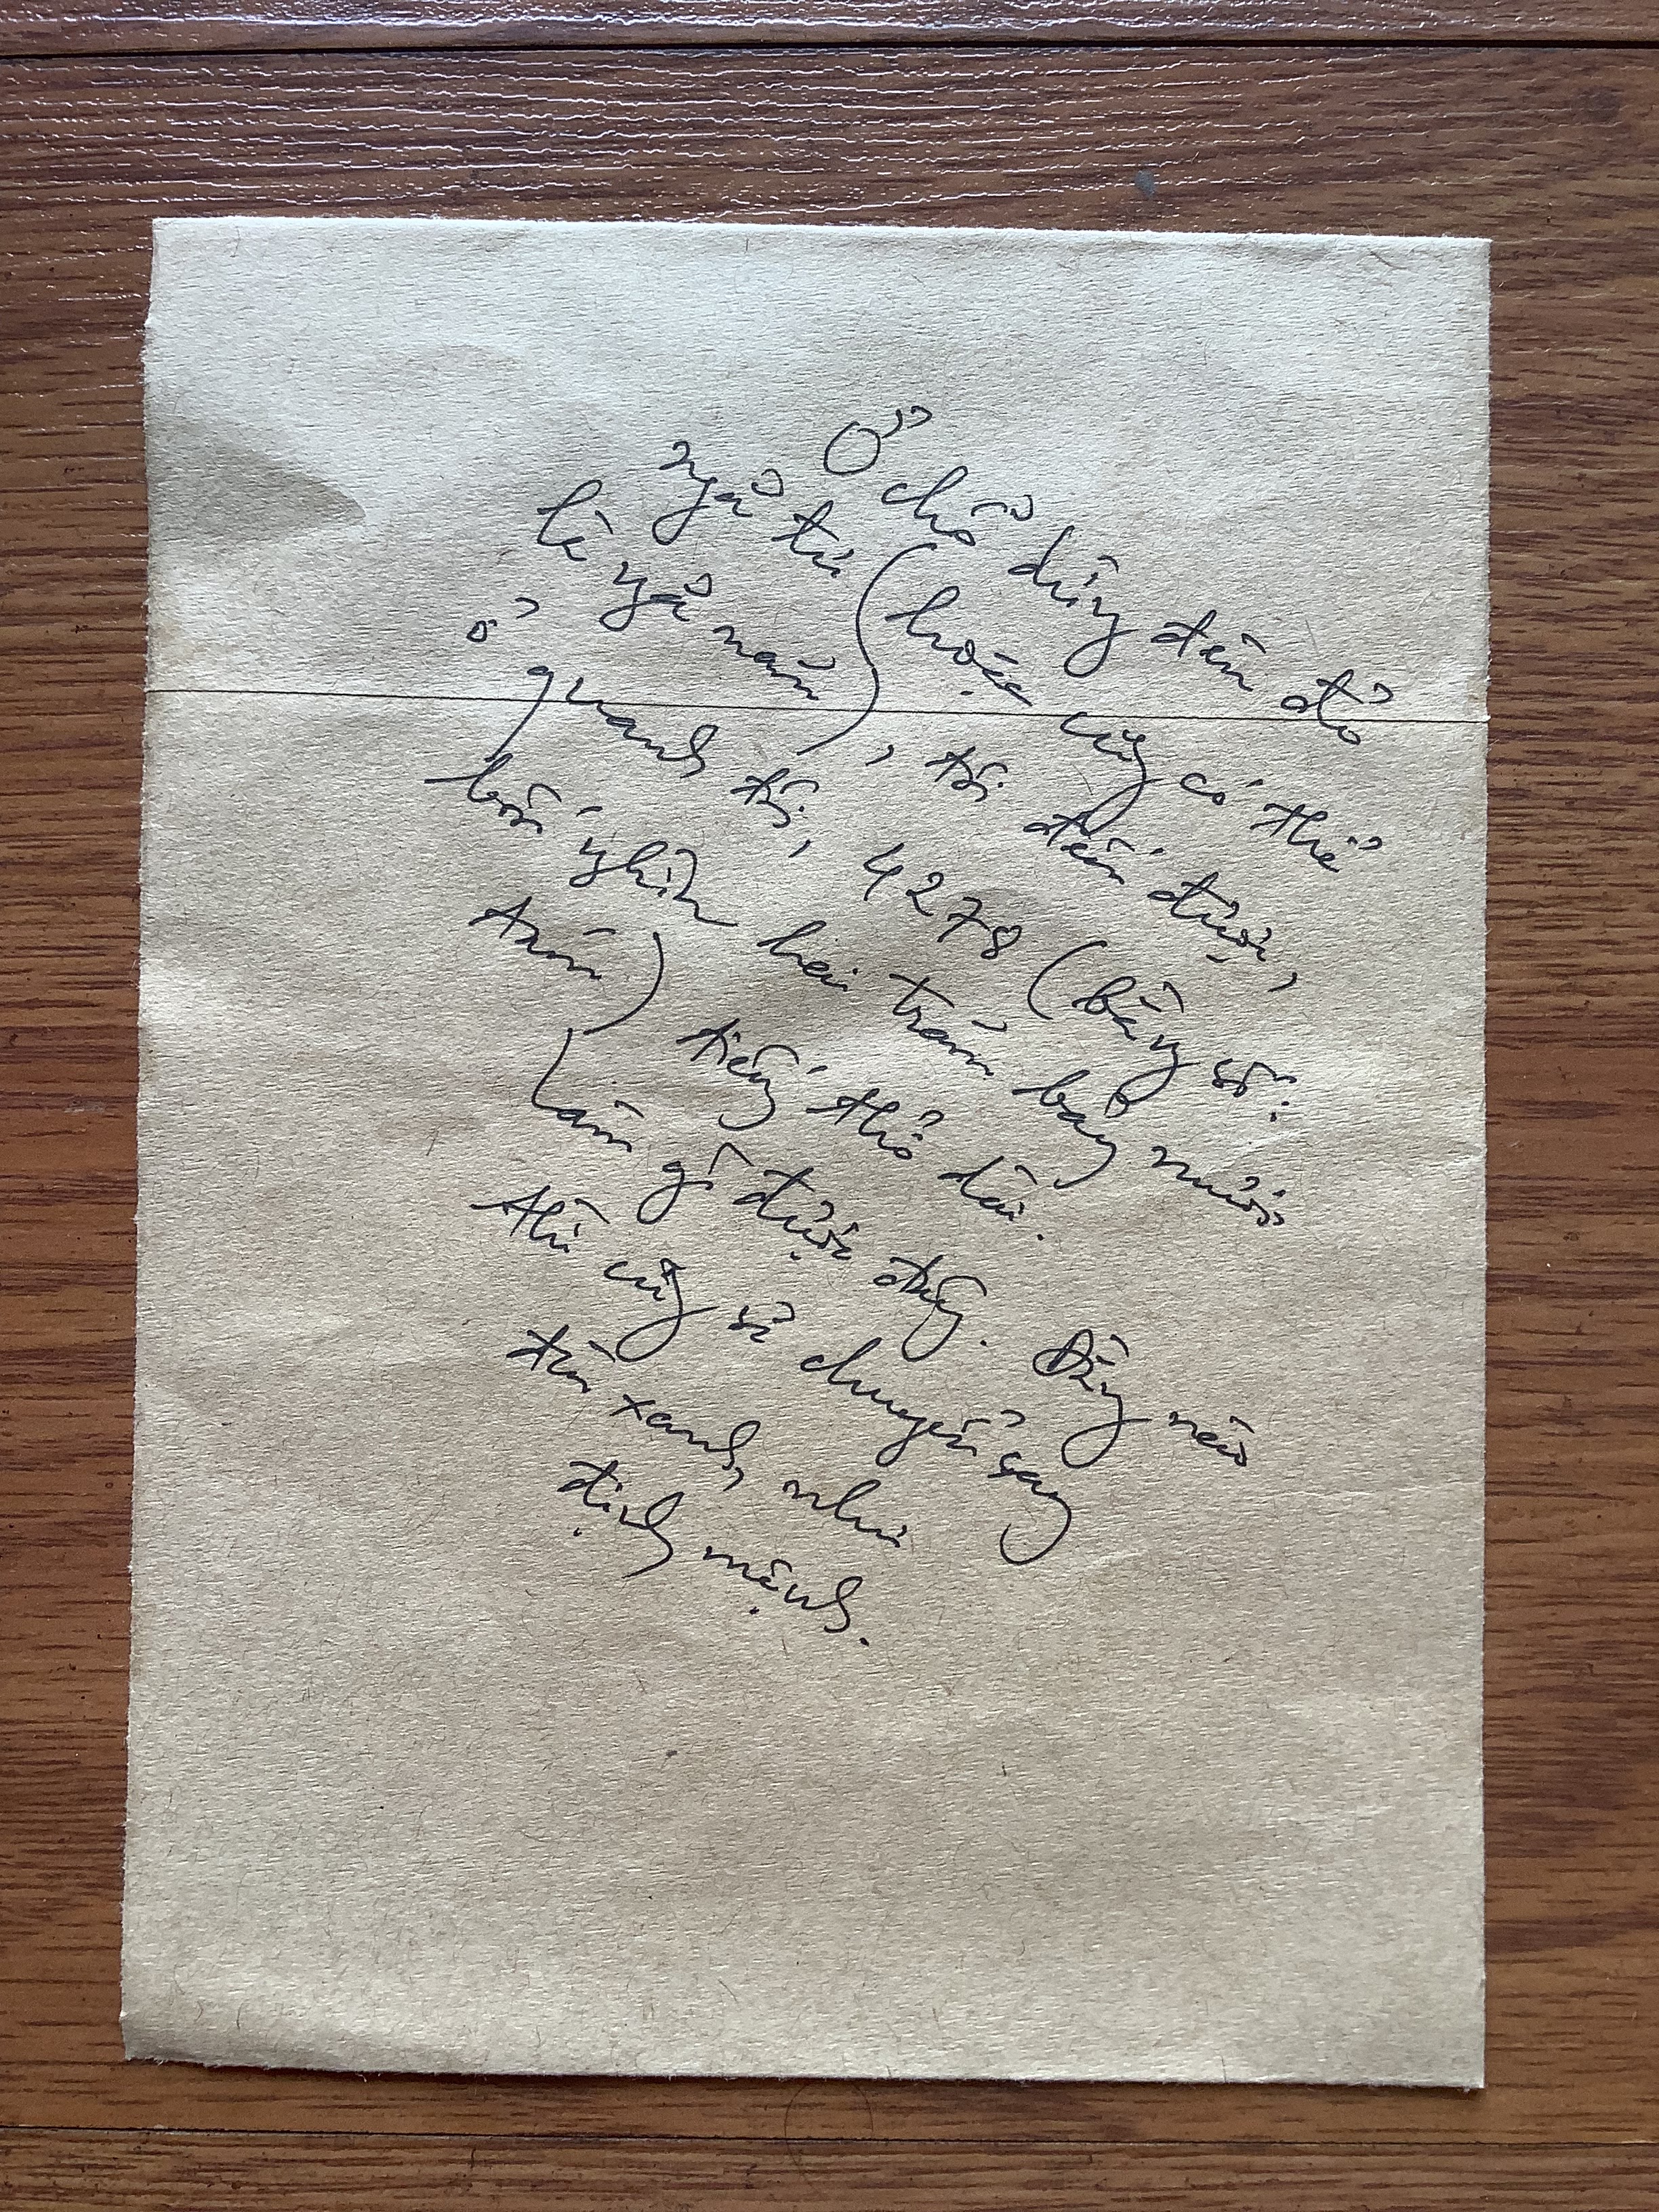 Ở chỗ dừng đèn đỏ
ngã tư (hoặc cũng có thể
là ngã năm), tôi đếm được,
ở quanh tôi, 4278 (bằng số:
bốn nghìn hai trăm bảy mươi
tám) tiếng thở dài.
Làm gì được đây. Đằng nào
thì cũng sẽ chuyển sang
đèn xanh, như
định mệnh.